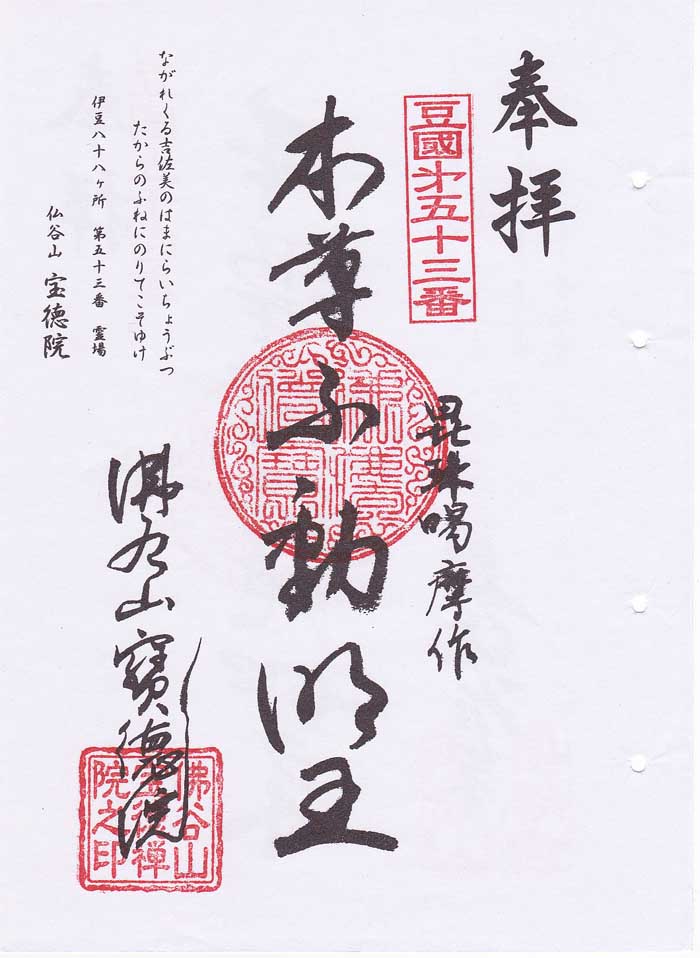 奉拝
豆國第五十三番
毘珠喝摩作
本尊不動明王
佛谷山寶德院
佛谷山
寶德禅
院之印
ながれくる吉佐美のはまにらいちょうぶつ
たからのふねにのりてこそゆけ
伊豆八十八ヶ所 第五十三番 霊場
仏谷山 宝徳院